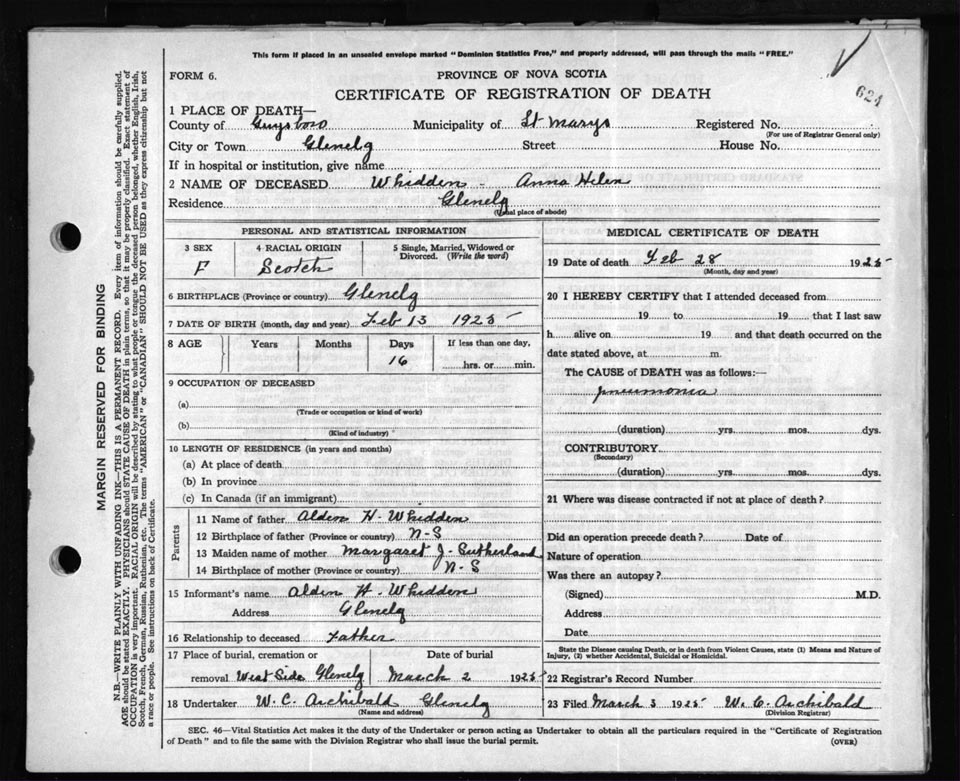 This form if placed in an unsealed envelope marked "Dominion Statistics Free," and properly addressed, will pass through the mails "FREE."
FORM 6.
PROVINCE OF NOVA SCOTIA
CERTIFICATE OF REGISTRATION OF DEATH
624
1 PLACE OF DEATH—
County of Guysboro Municipality of St Marys Registered No.
(For use of Registrar General only)
City or Town Glenelg Street House No.
If in hospital or institution, give name
2 NAME OF DECEASED Whidden - Anna Helen
Residence Glenelg
(Usual place of abode)
PERSONAL AND STATISTICAL INFORMATION
3 SEX 4 RACIAL ORIGIN 5 Single, Married, Widowed or Divorced. (Write the word)
F Scotch
6 BIRTHPLACE (Province or country) Glenelg
7 DATE OF BIRTH (month, day and year) Feb 13 1925
8 AGE Years Months Days If less than one day,
16 hrs. or min.
9 OCCUPATION OF DECEASED
(a)
(Trade or occupation or kind of work)
(b)
(Kind of industry)
10 LENGTH OF RESIDENCE (in years and months)
(a) At place of death
(b) In province
(c) In Canada (if an immigrant)
Parents
11 Name of father Alden H Whidden
12 Birthplace of father (Province or country) N-S
13 Maiden name of mother Margaret J - Sutherland
14 Birthplace of mother (Province or country) N-S
15 Informant's name Alden H. Whidden
Address Glenelg
16 Relationship to deceased Father
17 Place of burial, cremation or Date of burial
removal West Side Glenelg March 2 1925
18 Undertaker W. C. Archibald Glenelg
(Name and address)
MEDICAL CERTIFICATE OF DEATH
19 Date of death Feb 28 1925
(Month, day and year)
20 I HEREBY CERTIFY that I attended deceased from
19 to 19 that I last saw
h alive on 19 and that death occurred on the
date stated above, at m.
The CAUSE of DEATH was as follows:—
pneumonia
(duration) yrs. mos. dys.
CONTRIBUTORY
(Secondary)
(duration) yrs. mos. dys.
21 Where was disease contracted if not at place of death?
Did an operation precede death? Date of
Nature of operation
Was there an autopsy?
(Signed) M.D.
Address
Date
State the Disease causing Death, or in death from Violent Causes, state (1) Means and Nature of
Injury, (2) whether Accidental, Suicidal or Homicidal.
22 Registrar's Record Number
23 Filed March 3 1925 W. C. Archibald
(Division Registrar)
SEC. 46—Vital Statistics Act makes it the duty of the Undertaker or person acting as Undertaker to obtain all the particulars required in the "Certificate of Registration
of Death" and to file the same with the Division Registrar who shall issue the burial permit.
(OVER)
MARGIN RESERVED FOR BINDING
N.B.—WRITE PLAINLY WITH UNFADING INK—THIS IS A PERMANENT RECORD. Every item of information should be carefully supplied.
AGE should be stated EXACTLY. PHYSICIANS should STATE CAUSE OF DEATH in plain terms, so that it may be properly classified. Exact statement of
OCCUPATION is very important. RACIAL ORIGIN will be described by stating to what people or tongue the deceased person belonged, whether English, Irish,
Scotch, French, German, Russian, Ruthenian, etc. The terms "AMERICAN" or "CANADIAN" SHOULD NOT BE USED as they express citizenship but not
a race or people. See instructions on back of Certificate.